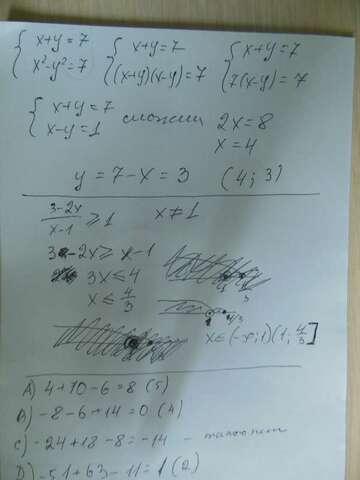 { x+y=7 { x+y=7 { x+y=7
x²-y²=7 (x+y)(x-y)=7 7(x-y)=7
{ x+y=7
x-y=1 сложим 2x=8
x=4
y=7-x=3 (4; 3)
3-2x/x-1 ≥1 x≠1
3-2x≥x-1
3x≤4
x≤4/3
1 4/3
x∈(-∞;1)(1; 4/3]
A) 4+10-6=8 (5)
B) -8-6+14=0 (4)
C) -24+18-8=-14 -
D) -51+63-11=1 (2)